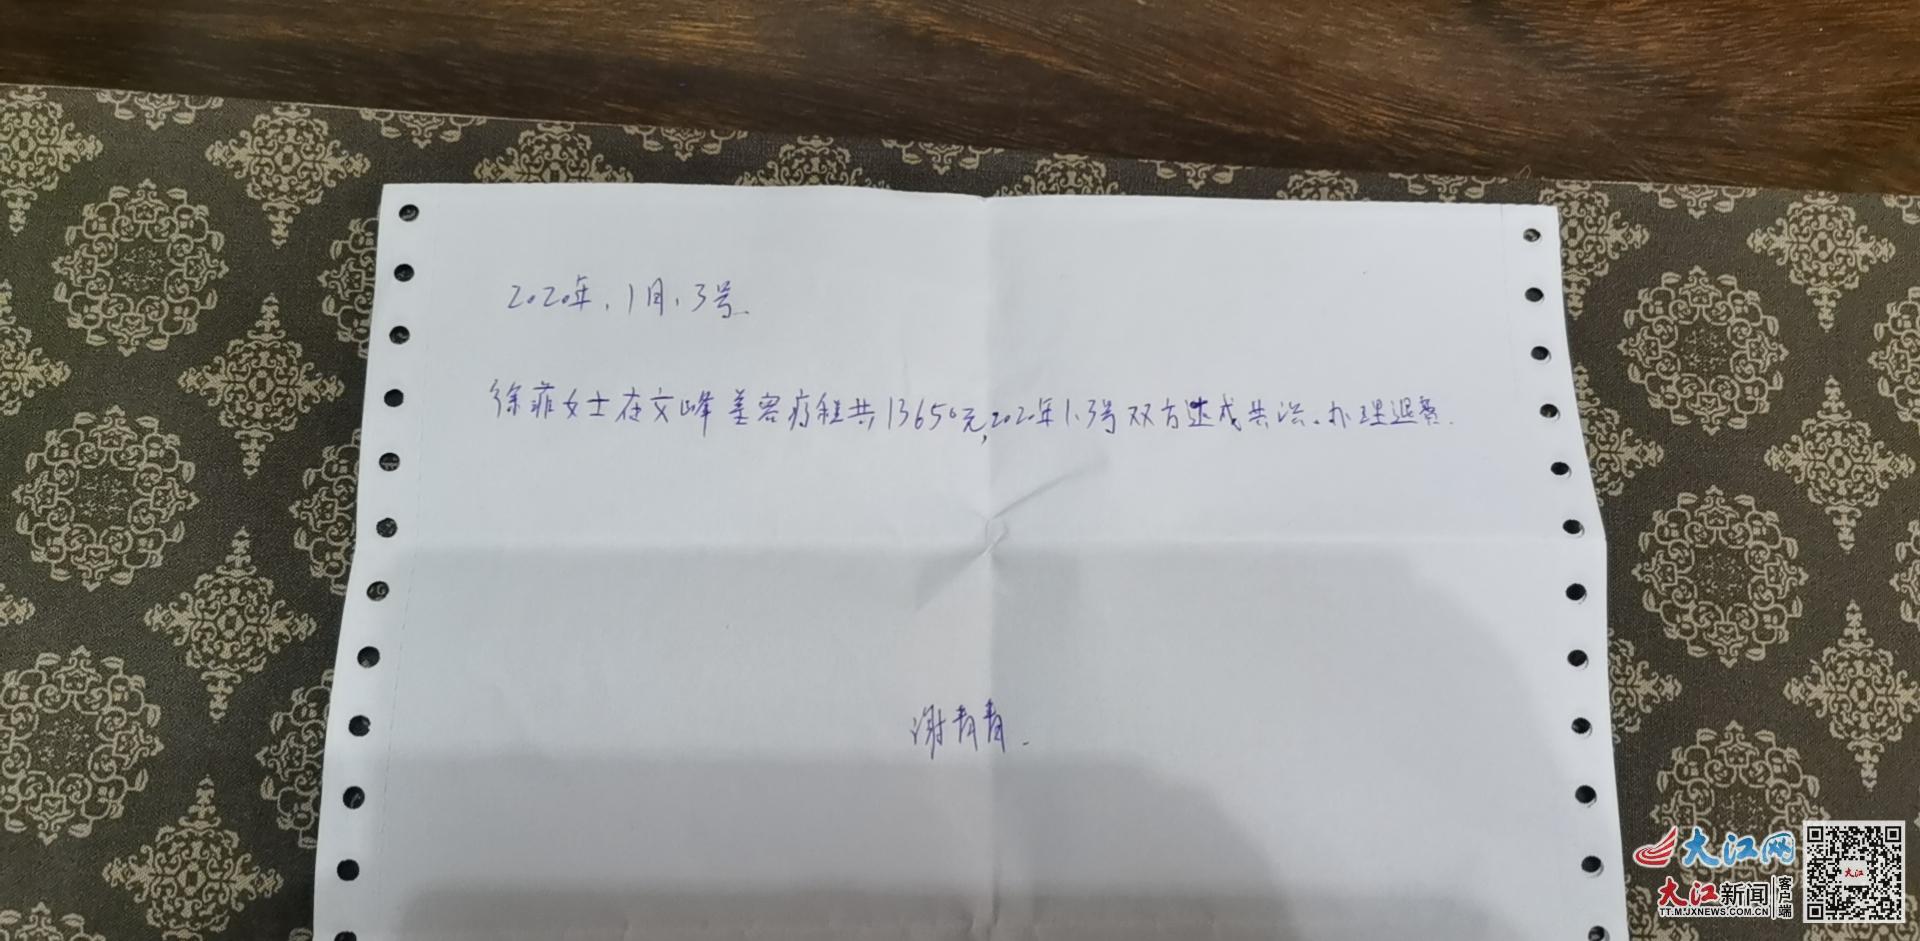 2020年.1月.3号.
徐菲女士在文峰美容疗程共13650元,2020年1.3号双方达成共识.办理退费.
谢青青.
大江网
大江新闻 客户端
TT.M.JXNEWS.COM.CN
大江